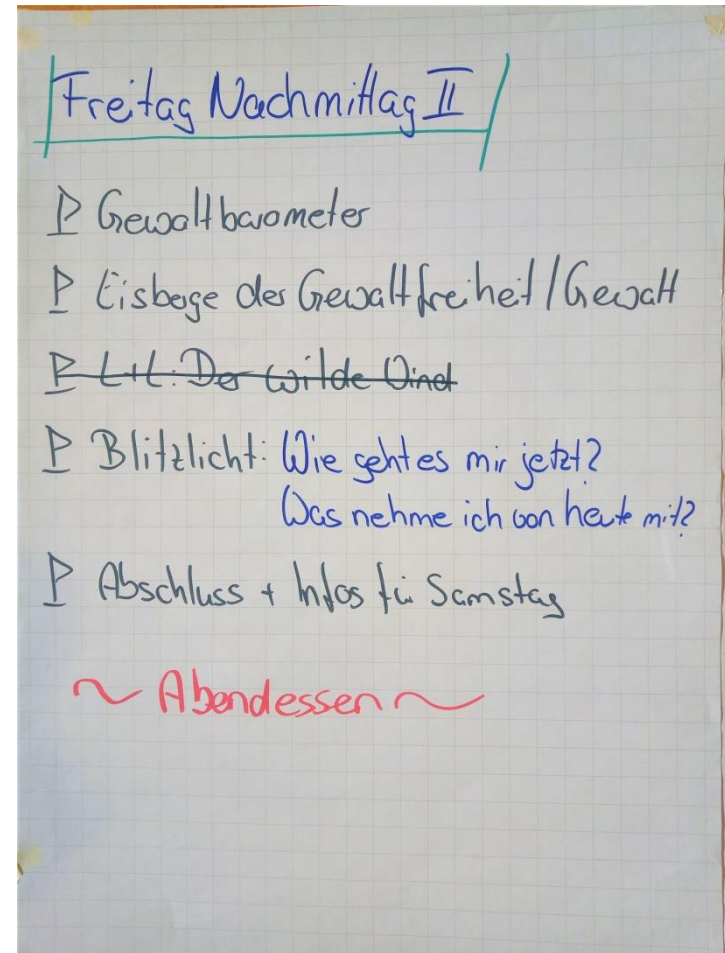 Freitag Nachmittag II
Gewaltbarometer
Eisberge der Gewaltfreiheit/Gewalt
L+L: Der wilde
Blitzlicht: Wie geht es mir jetzt?
Was nehme ich von heute mit?
Abschluss + Infos für Samstag
~ Abendessen ~